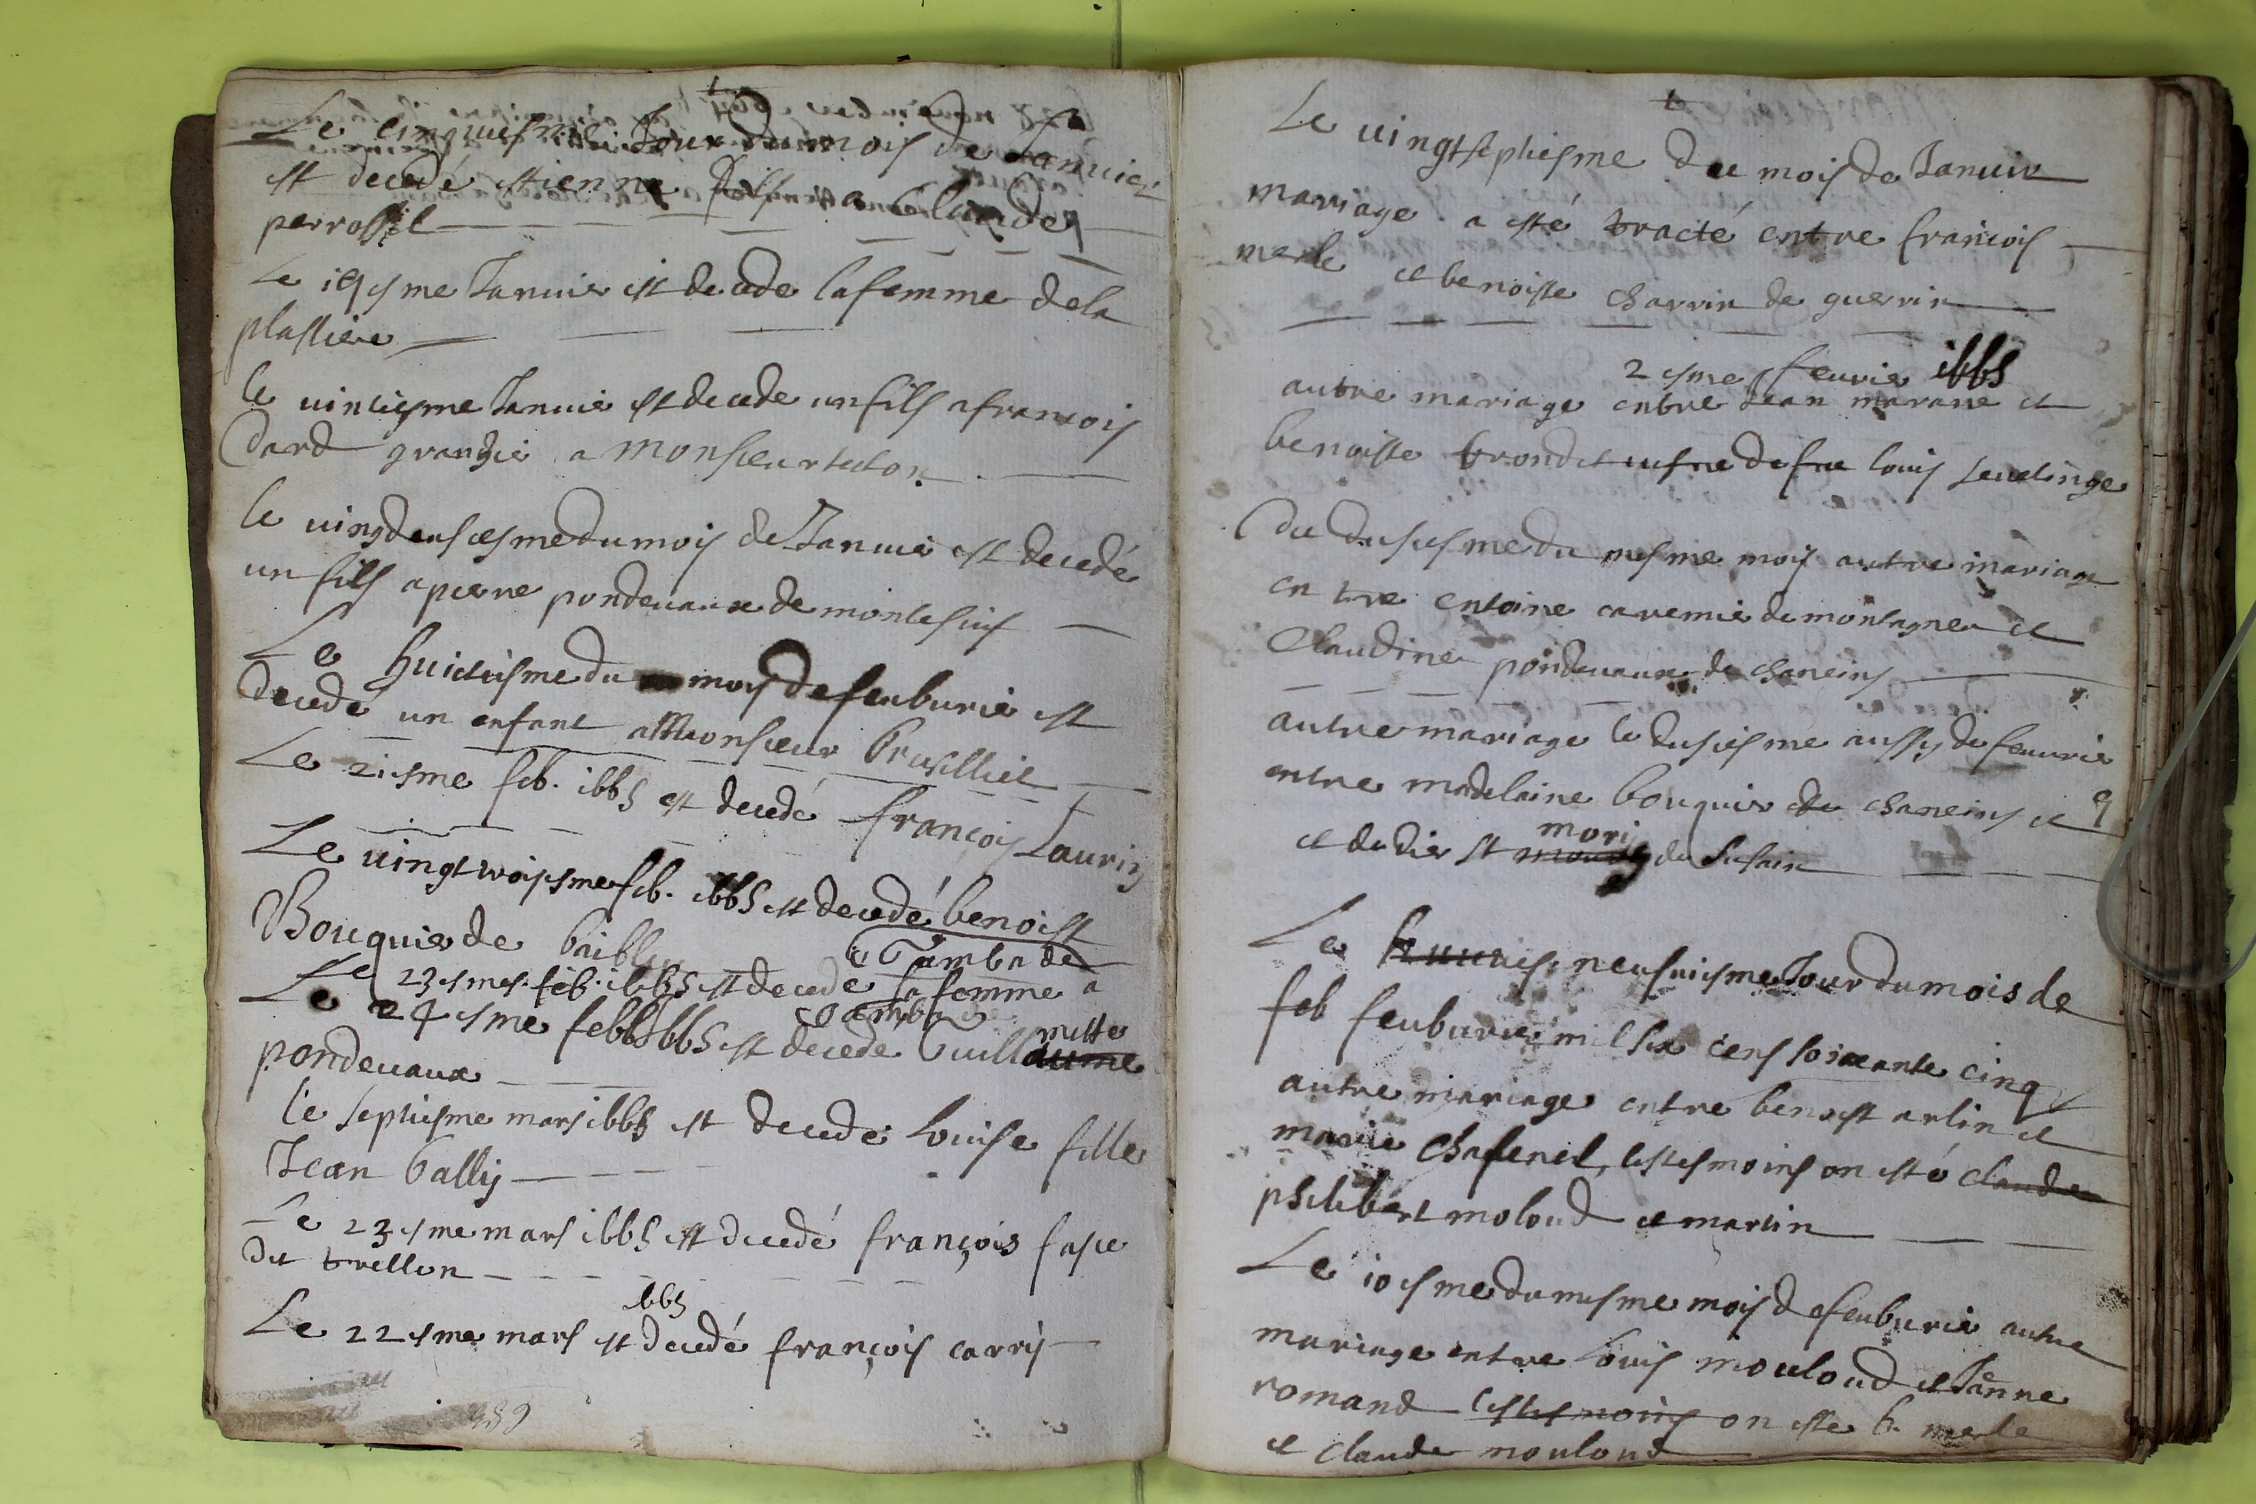 Le cinquiesme Jour du mois de Januier
est decedé estienne fils a Claude
perrossil
Le 19isme Januier est decede la femme de la
plassiere
le vinciesme Januie est decede un fils a francois
dard grangie a monsieur tulon
le vingdeusiesme du mois de Januie est decedé
un fils a pierre pondeuaux de montesuis
Le huictiesme du mois de feuburie est
decedé un enfant a Monsieur brusilliet
Le 21isme feb. 1665 est decedé françois Laurin
Le vingtroisisme feb. 1665 est decedé benoist
Bouquier de
Le 23isme feb. 1665 est decede la femme a
Le 24isme feb 1665 est decede Guille mette
pondeuaux
Le septiesme mars 1665 est decede Louise fille
Jean bally
Le 23isme mars 1665 est decedé françois fasie
dit trellon
1665
Le 22isme mars est decedé françois carris
Le vingtseptiesme du mois de Januir
mariage a esté tracté entre francois
merle et benoiste charvin de guerrin
2isme feurie 1665
autre mariage entre Jean marane et
benoiste brondet vefue de feu louis seuelinge
du dusiesme du mesme mois autre mariage
entre entoine caremie de montagne et
Claudine pondeuaux de chaneins
autre mariage le dusiesme aussy de feurie
entre madelaine bouquir de chaneins et
mori
et dedier st du
Le neufuiesme Jour du mois de
feb feuburie mil six cens soixante cinq
autre mariage entre benoist arlin et
marie Chafenel, les tesmoins on esté claude
philibert moloud et martin
Le 10isme du mesme mois de feuburie autre
mariage entre Louis mouloud et Janne
romand les tesmoins on este b. merle
et claude mouloud